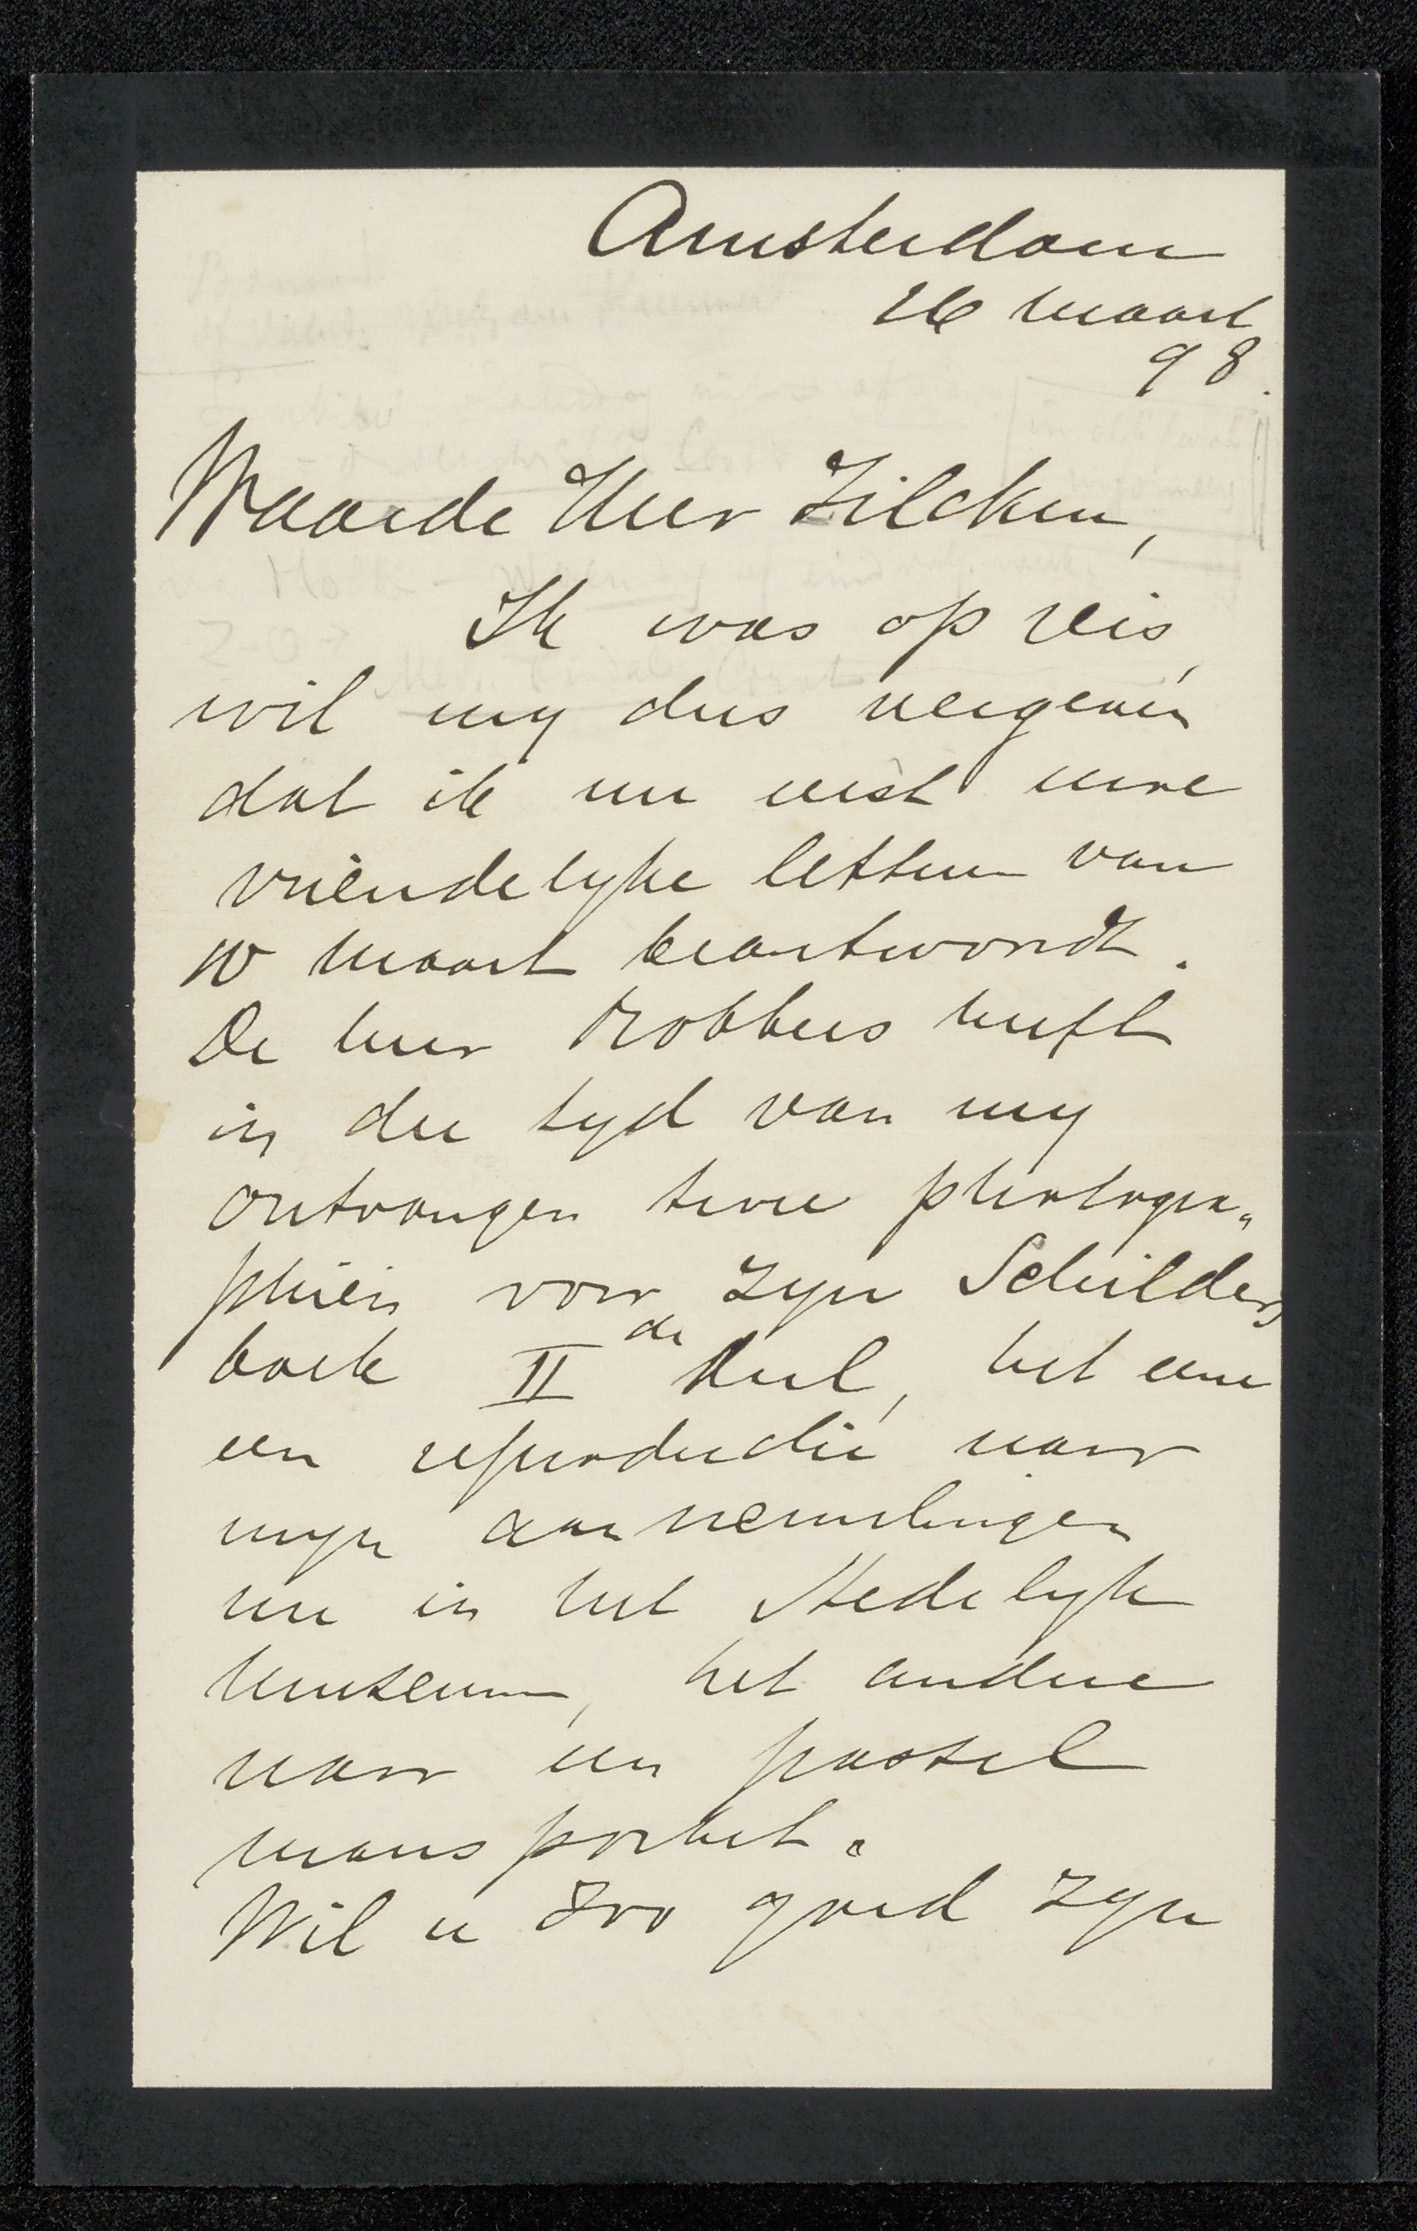 Amsterdam
16 Maart
98.
Waarde Heer Zilcken,
Ik was op reis,
wil my dus vergeven
dat ik nu eerst uwe
vriendelyke letteren van
10 Maart beantwoordt.
De heer Robbers heeft
in der tyd van my
ontvangen twee photogra„
phiën voor zyn Schilders
boek II de Deel, het eene
een reproductie naar
myn aannemelingen
nu in het Stedelyk
Museum, het andere
naar een pastel
mansportret.
Wil u zoo goed zyn